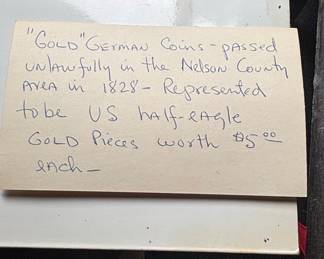 "GOLD" GERMAN COINS - passed
unlawfully in the Nelson County
Area in 1828 - Represented
to be US half-eagle
GOLD Pieces worth $5.00
each -